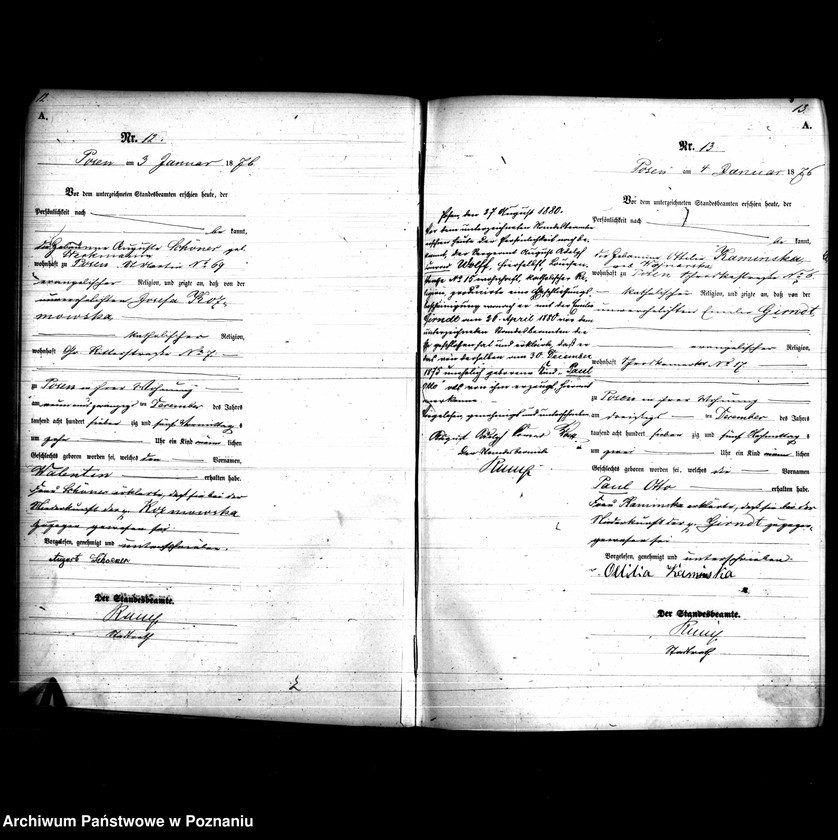 12.
A.
Nr. 12.
Posen am 3 Januar 1876.
Vor dem unterzeichneten Standesbeamten erschien heute, der
Persönlichkeit nach
be kannt,
die Hebamme Auguste Schöner geb.
wohnhaft zu Posen St Martin No 69
evangelischer Religion, und zeigte an, daß von der
unverehelichten Josefa Koz-
mowska
katholischer Religion,
wohnhaft Ritterstraße No 7.
zu Posen in ihrer Wohnung
am neun und zwanzigsten December des Jahres
tausend acht hundert sieben zig und fünf Vormittags
um zehn Uhr ein Kind männ lichen
Geschlechts geboren worden sei, welches den Vornamen
Walentin erhalten habe.
Frau Schöner erklärte, daß sie bei der
Niederkunft der p. Kozmowska
zugegen gewesen sei.
Vorgelesen, genehmigt und unterschrieben.
August Schoener
Der Standesbeamte.
Rump
Stadtrath
13.
A.
Nr. 13
Posen am 4 Januar 1876
Vor dem unterzeichneten Standesbeamten erschien heute, der
Persönlichkeit nach
be kannt,
die Hebamme Ottilie Kaminska,
wohnhaft zu Posen No 6
katholischer Religion, und zeigte an, daß von der
unverehelichten Emilie Gerndt
evangelischer Religion,
wohnhaft No 17
zu Posen in ihrer Wohnung
am dreißigsten December des Jahres
tausend acht hundert sieben zig und fünf Nachmittags
um zwei Uhr ein Kind männ lichen
Geschlechts geboren worden sei, welches die Vornamen
Paul Otto erhalten habe.
Frau Kaminska erklärte, daß sie bei der
Niederkunft der p. Gerndt zugegen
gewesen sei.
Vorgelesen, genehmigt und unterschrieben.
Ottilia Kaminska
Der Standesbeamte.
Rump
Stadtrath
Posen, den 27 August 1880.
Vor dem unterzeichneten Standesbeamten
erschien heute der Persönlichkeit nach be-
kannt, der Sergeant August Adolph
Conrad Wolff, hierselbst, Louisen-
straße No 15 wohnhaft, katholischer Re-
ligion, producirte eine Eheschließungs-
bescheinigung wonach er mit der Emilie
Gerndt am 26. April 1880 vor dem
unterzeichneten Standesbeamten die
Ehe geschlossen hat und erklärte, daß er
das von derselben am 30. December
1875 unehelich geborene Kind "Paul
Otto" als von ihm erzeugt, hiermit
anerkenne.
Vorgelesen genehmigt und unterschrieben
August Adolph Conrad Wolff
Der Standesbeamte
Rump
Archiwum Państwowe w Poznaniu